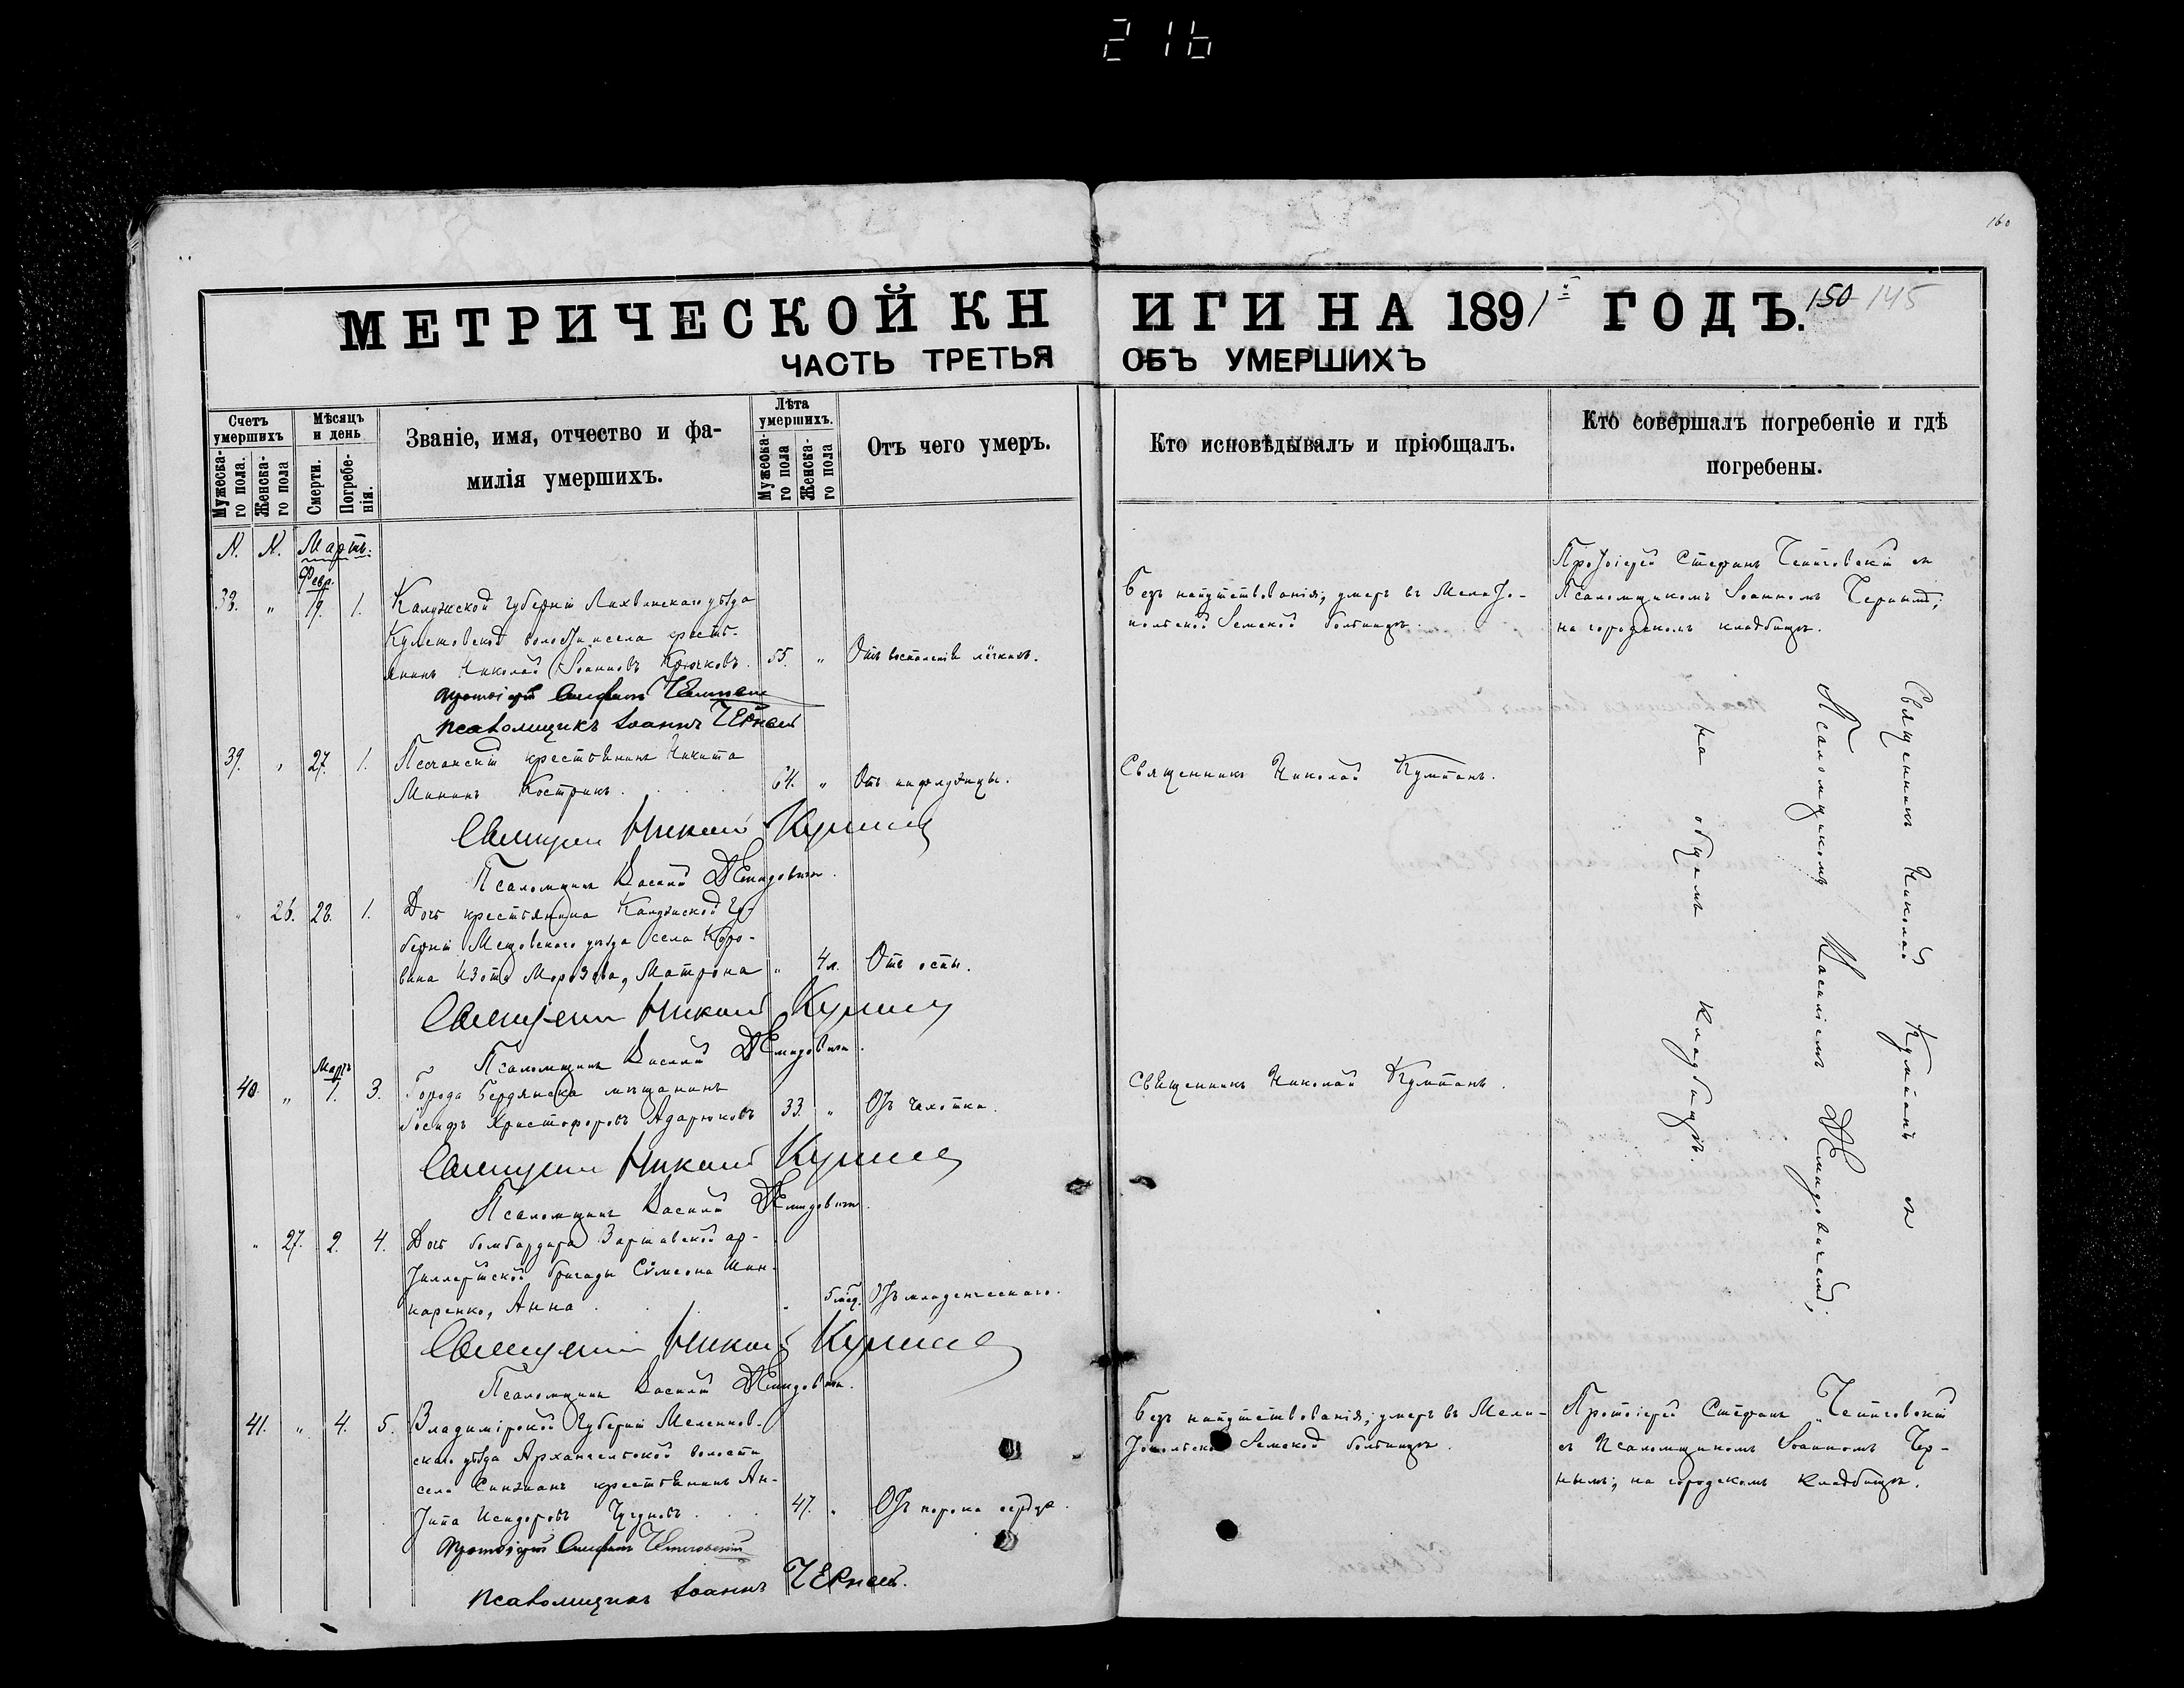 216
160
МЕТРИЧЕСКОЙ КНИГИ НА 1891й ГОДЪ. 150 145
ЧАСТЬ ТРЕТЬЯ ОБЪ УМЕРШИХЪ
Счетъ умершихъ
Мужеска-го пола.
Женска-го пола
Мѣсяцъ и день
Смерти.
Погребе-нія.
Званіе, имя, отчество и фа-
милія умершихъ.
Лѣта умершихъ.
Мужеска-го пола
Женска-го пола
Отъ чего умеръ.
Кто исповѣдывалъ и пріобщалъ.
Кто совершалъ погребеніе и гдѣ
погребены.
N. N. Мартъ.
Февр.
38. " 19. 1. Калужской губерніи Лихвинскаго уѣзда
волости и села кресть-
янинъ Николай Іоанновъ Крючковъ. 55. " Отъ воспаленія лёгкихъ.
Безъ напутствованія; умеръ въ Мелито-
польской Земской больницѣ.
Протоіерей Стефанъ съ
Псаломщикомъ Іоанномъ Чернымъ;
на городскомъ кладбищѣ.
Протоіерей Стефанъ
Псаломщикъ Іоаннъ Черный
39. " 27. 1. Песчанскій крестьянинъ Никита
Мининъ Кострикъ. 64. " Отъ инфлуэнцы.
Священникъ Николай Кумпанъ.
Священникъ Николай Кумпанъ
Псаломщикъ Василій Демидовичъ.
" 26. 28. 1. Дочь крестьянина Калужской Гу-
берніи Мещовскаго уѣзда села Коро-
вина Изота Морозова, Матрона " 4 л. Отъ оспы.
Священникъ Николай Кумпанъ
Псаломщикъ Василій Демидовичъ.
Мартъ
40. " 1. 3. Города Бердянска мѣщанинъ
Іосифъ Христофоровъ Адарюковъ 33. " Отъ чахотки.
Священникъ Николай Кумпанъ.
Священникъ Николай Кумпанъ
Псаломщикъ Василій Демидовичъ.
" 27. 2. 4. Дочь бомбардира Варшавской ар-
тиллерійской бригады Сѵмеона Шин-
каренко, Анна. " Отъ младенческаго.
Священникъ Николай Кумпанъ
Псаломщикъ Василій Демидовичъ.
Священникъ Николай Кумпанъ съ
Псаломщикомъ Василіемъ Демидовичемъ;
на общемъ кладбищѣ.
41. " 4. 5. Владимірской Губерніи Меленков-
скаго уѣзда Архангельской волости
села Синжанъ крестьянинъ Ан-
типа Исидоровъ Чугуновъ. 47. " Отъ порока сердца.
Безъ напутствованія; умеръ въ Мели-
топольской Земской больницѣ.
Протоіерей Стефанъ
съ Псаломщикомъ Іоанномъ Чер-
нымъ; на городскомъ кладбищѣ.
Протоіерей Стефанъ
Псаломщикъ Іоаннъ Черный.